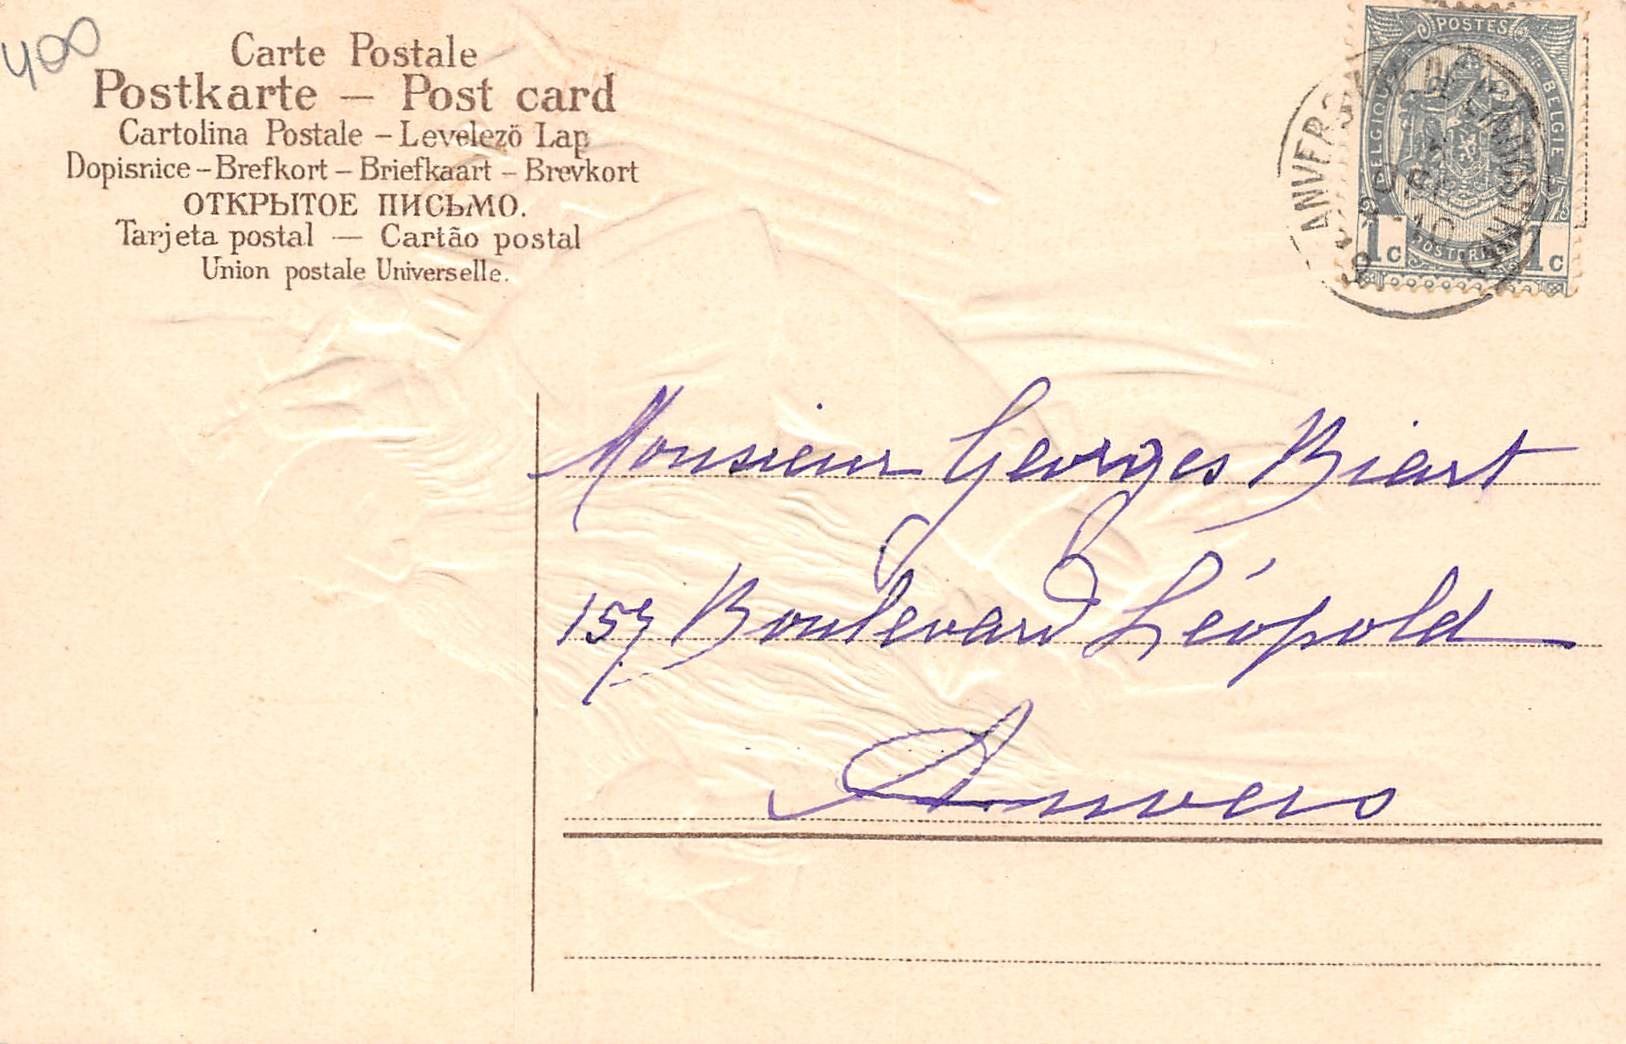 400
Carte Postale
Postkarte — Post card
Cartolina Postale – Levelező Lap
Dopisnice – Brefkort – Briefkaart – Brevkort
ОТКРЫТОЕ ПИСЬМО.
Tarjeta postal — Cartão postal
Union postale Universelle.
POSTES
BELGIQUE BELGIE
POSTERIJEN
1c 1c
ANVERS
Monsieur Georges Biart
157 Boulevard Léopold
Anvers